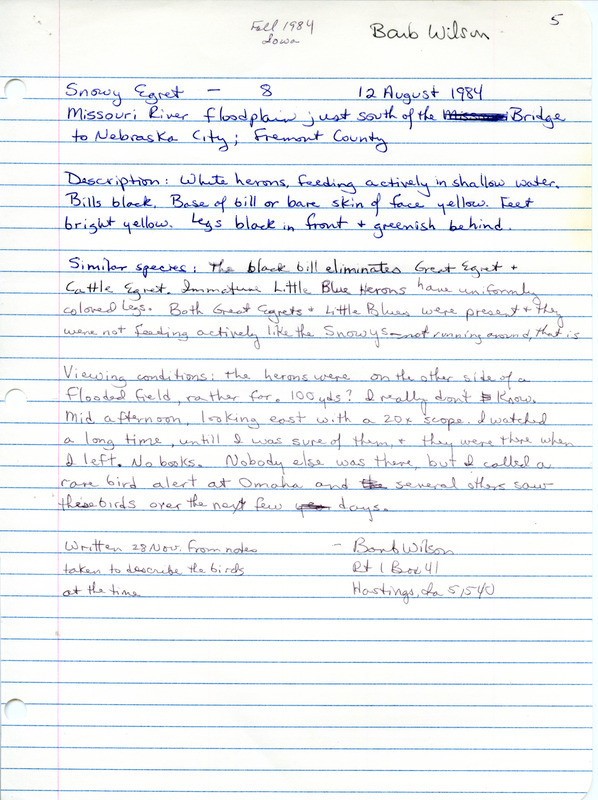 Fall 1984
Iowa
Barb Wilson
5
Snowy Egret — 8 12 August 1984
Missouri River floodplain just south of the Bridge
to Nebraska City; Fremont County
Description: White herons, feeding actively in shallow water.
Bills black. Base of bill or bare skin of face yellow. Feet
bright yellow. Legs black in front + greenish behind.
Similar species: The black bill eliminates Great Egret +
Cattle Egret. Immature Little Blue Herons have uniformly
colored legs. Both Great Egrets + Little Blues were present + they
were not feeding actively like the Snowys—not running around, that is
Viewing conditions: the herons were on the other side of a
flooded field, rather far. 100 yds? I really don't know.
Mid afternoon, looking east with a 20x scope. I watched
a long time, untill I was sure of them, + they were there when
I left. No books. Nobody else was there, but I called a
rare bird alert at Omaha and several others saw
these birds over the next few days.
Written 28 Nov. from notes — Barb Wilson
taken to describe the birds Rt 1 Box 41
at the time Hastings, Ia 51540